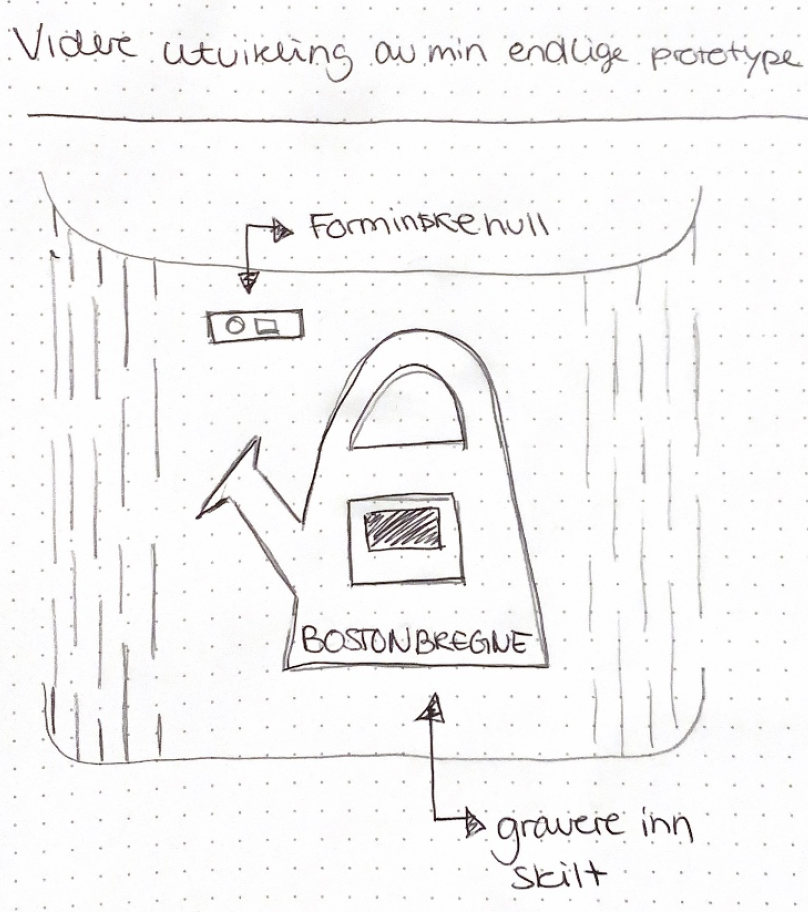 Videre utvikling av min endlige prototype
Forminske hull
BOSTONBREGNE
gravere inn
skilt